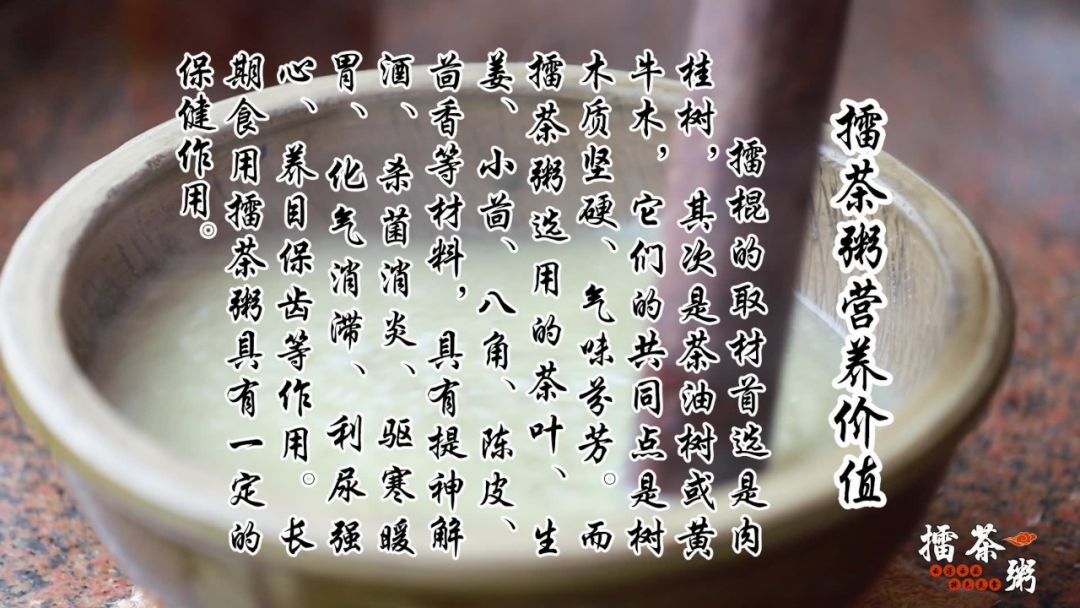 擂茶粥营养价值
擂棍的取材首选是肉
桂树，其次是茶油树或黄
牛木，它们的共同点是树
木质坚硬、气味芬芳。而
擂茶粥选用的茶叶、生
姜、小茴、八角、陈皮、
茴香等材料，具有提神解
酒、杀菌消炎、驱寒暖
胃、化气消滞、利尿强
心、养目保齿等作用。长
期食用擂茶粥具有一定的
保健作用。
擂茶粥